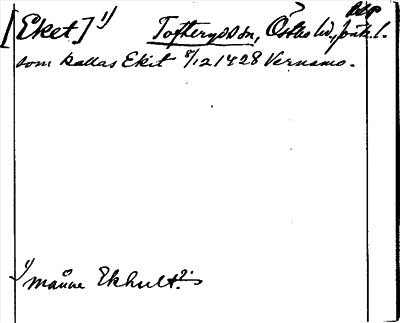 [Eket] 1) Tofteryds sn, Östbo hd, Jönk. l.
som kallas Ekit 8/12 1428 Vernamo.
1) månne Ekhult?